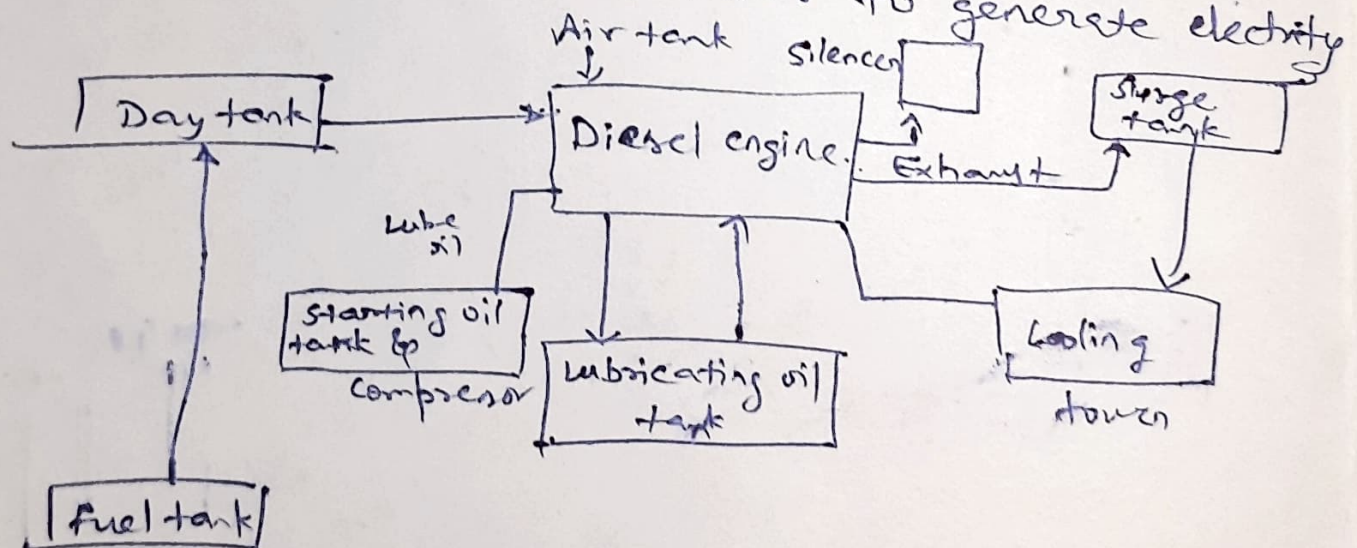 generate electrity
Air tank
Silencer
Surge
tank
Day tank
Diesel engine.
Exhaust
Lube
oil
Starting oil
tank &
Compressor
Lubricating oil
tank
Cooling
tower
fuel tank